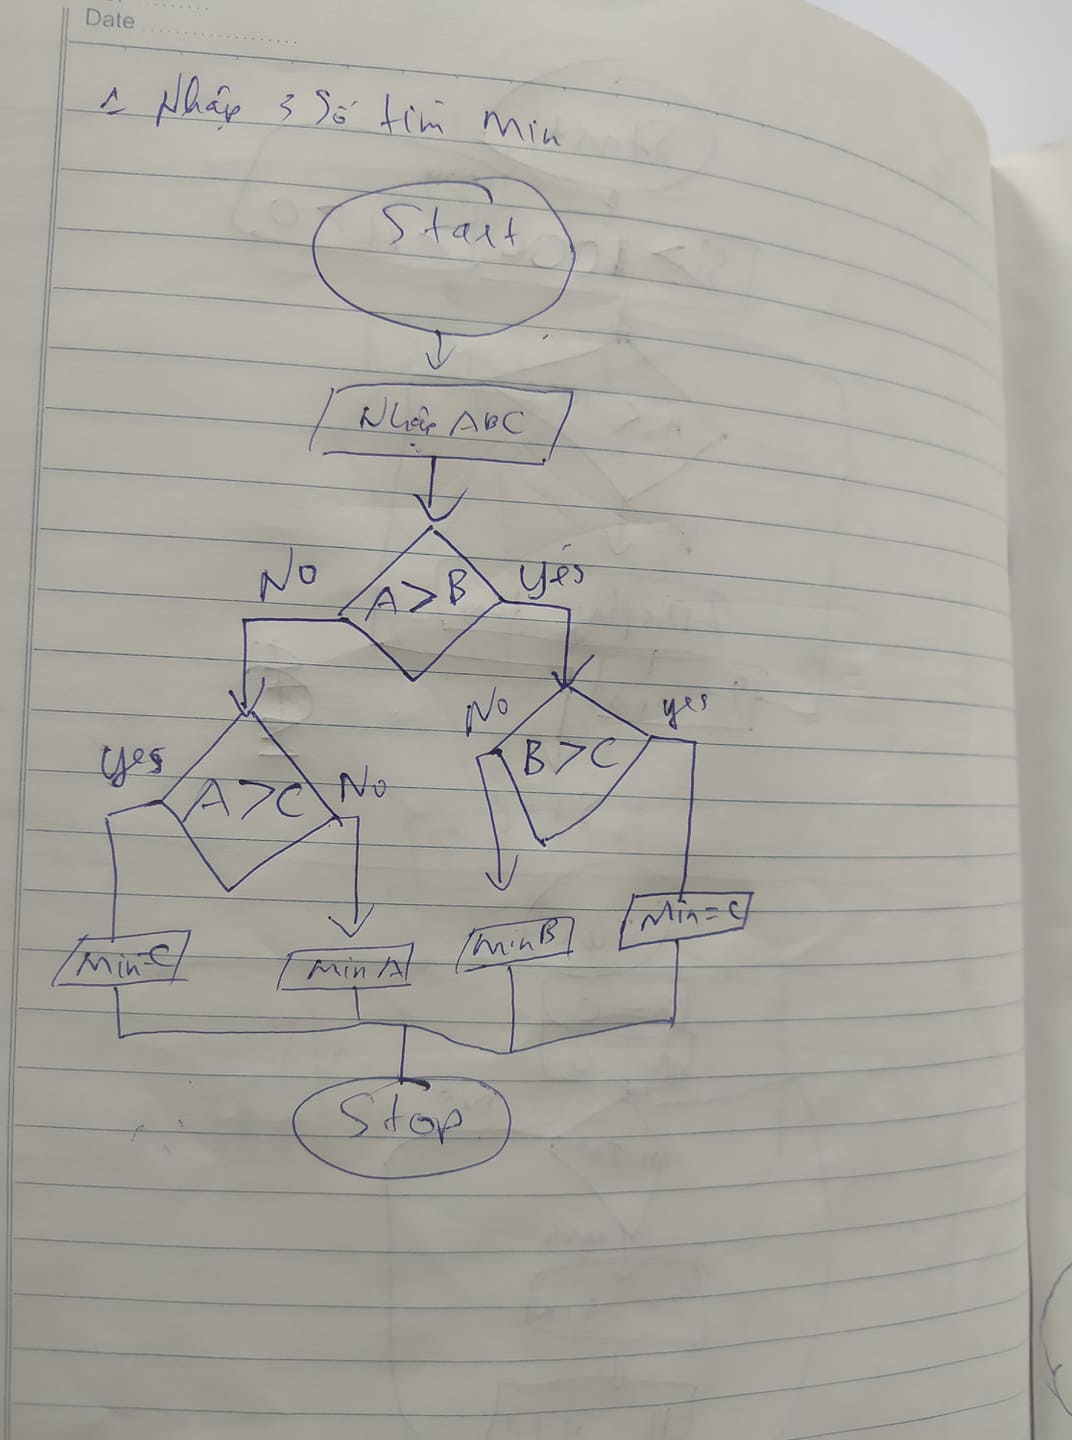 Date
1 Nhập 3 Số tìm Min
Start
Nhập ABC
No
A>B
yes
yes
A>C
No
No
B>C
yes
Min=C
Min A
Min B
Min=C
Stop